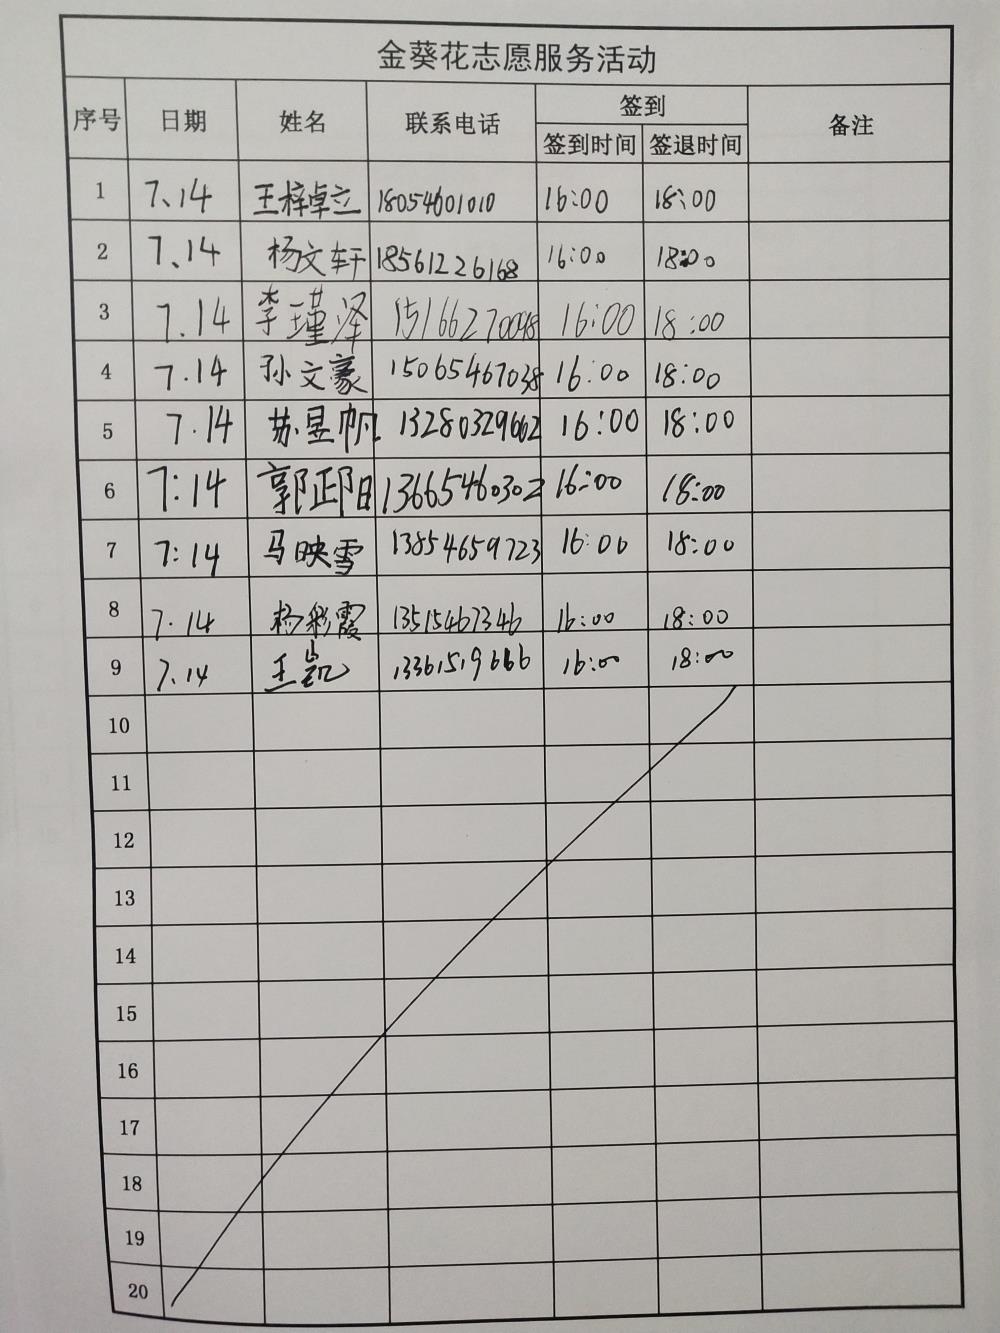 金葵花志愿服务活动
序号 日期 姓名 联系电话 签到 备注
签到时间 签退时间
1 7.14 王梓卓立 18054601010 16:00 18:00
2 7.14 杨文轩 18561226168 16:00 18:00
3 7.14 李瑾泽 15166270098 16:00 18:00
4 7.14 孙文豪 15065467038 16:00 18:00
5 7.14 苏昱帆 13280329662 16:00 18:00
6 7:14 郭正阳 13665460302 16:00 18:00
7 7:14 马映雪 13854659723 16:00 18:00
8 7.14 杨彩霞 13515467346 16:00 18:00
9 7.14 王凯 13361519666 16:00 18:00
10
11
12
13
14
15
16
17
18
19
20